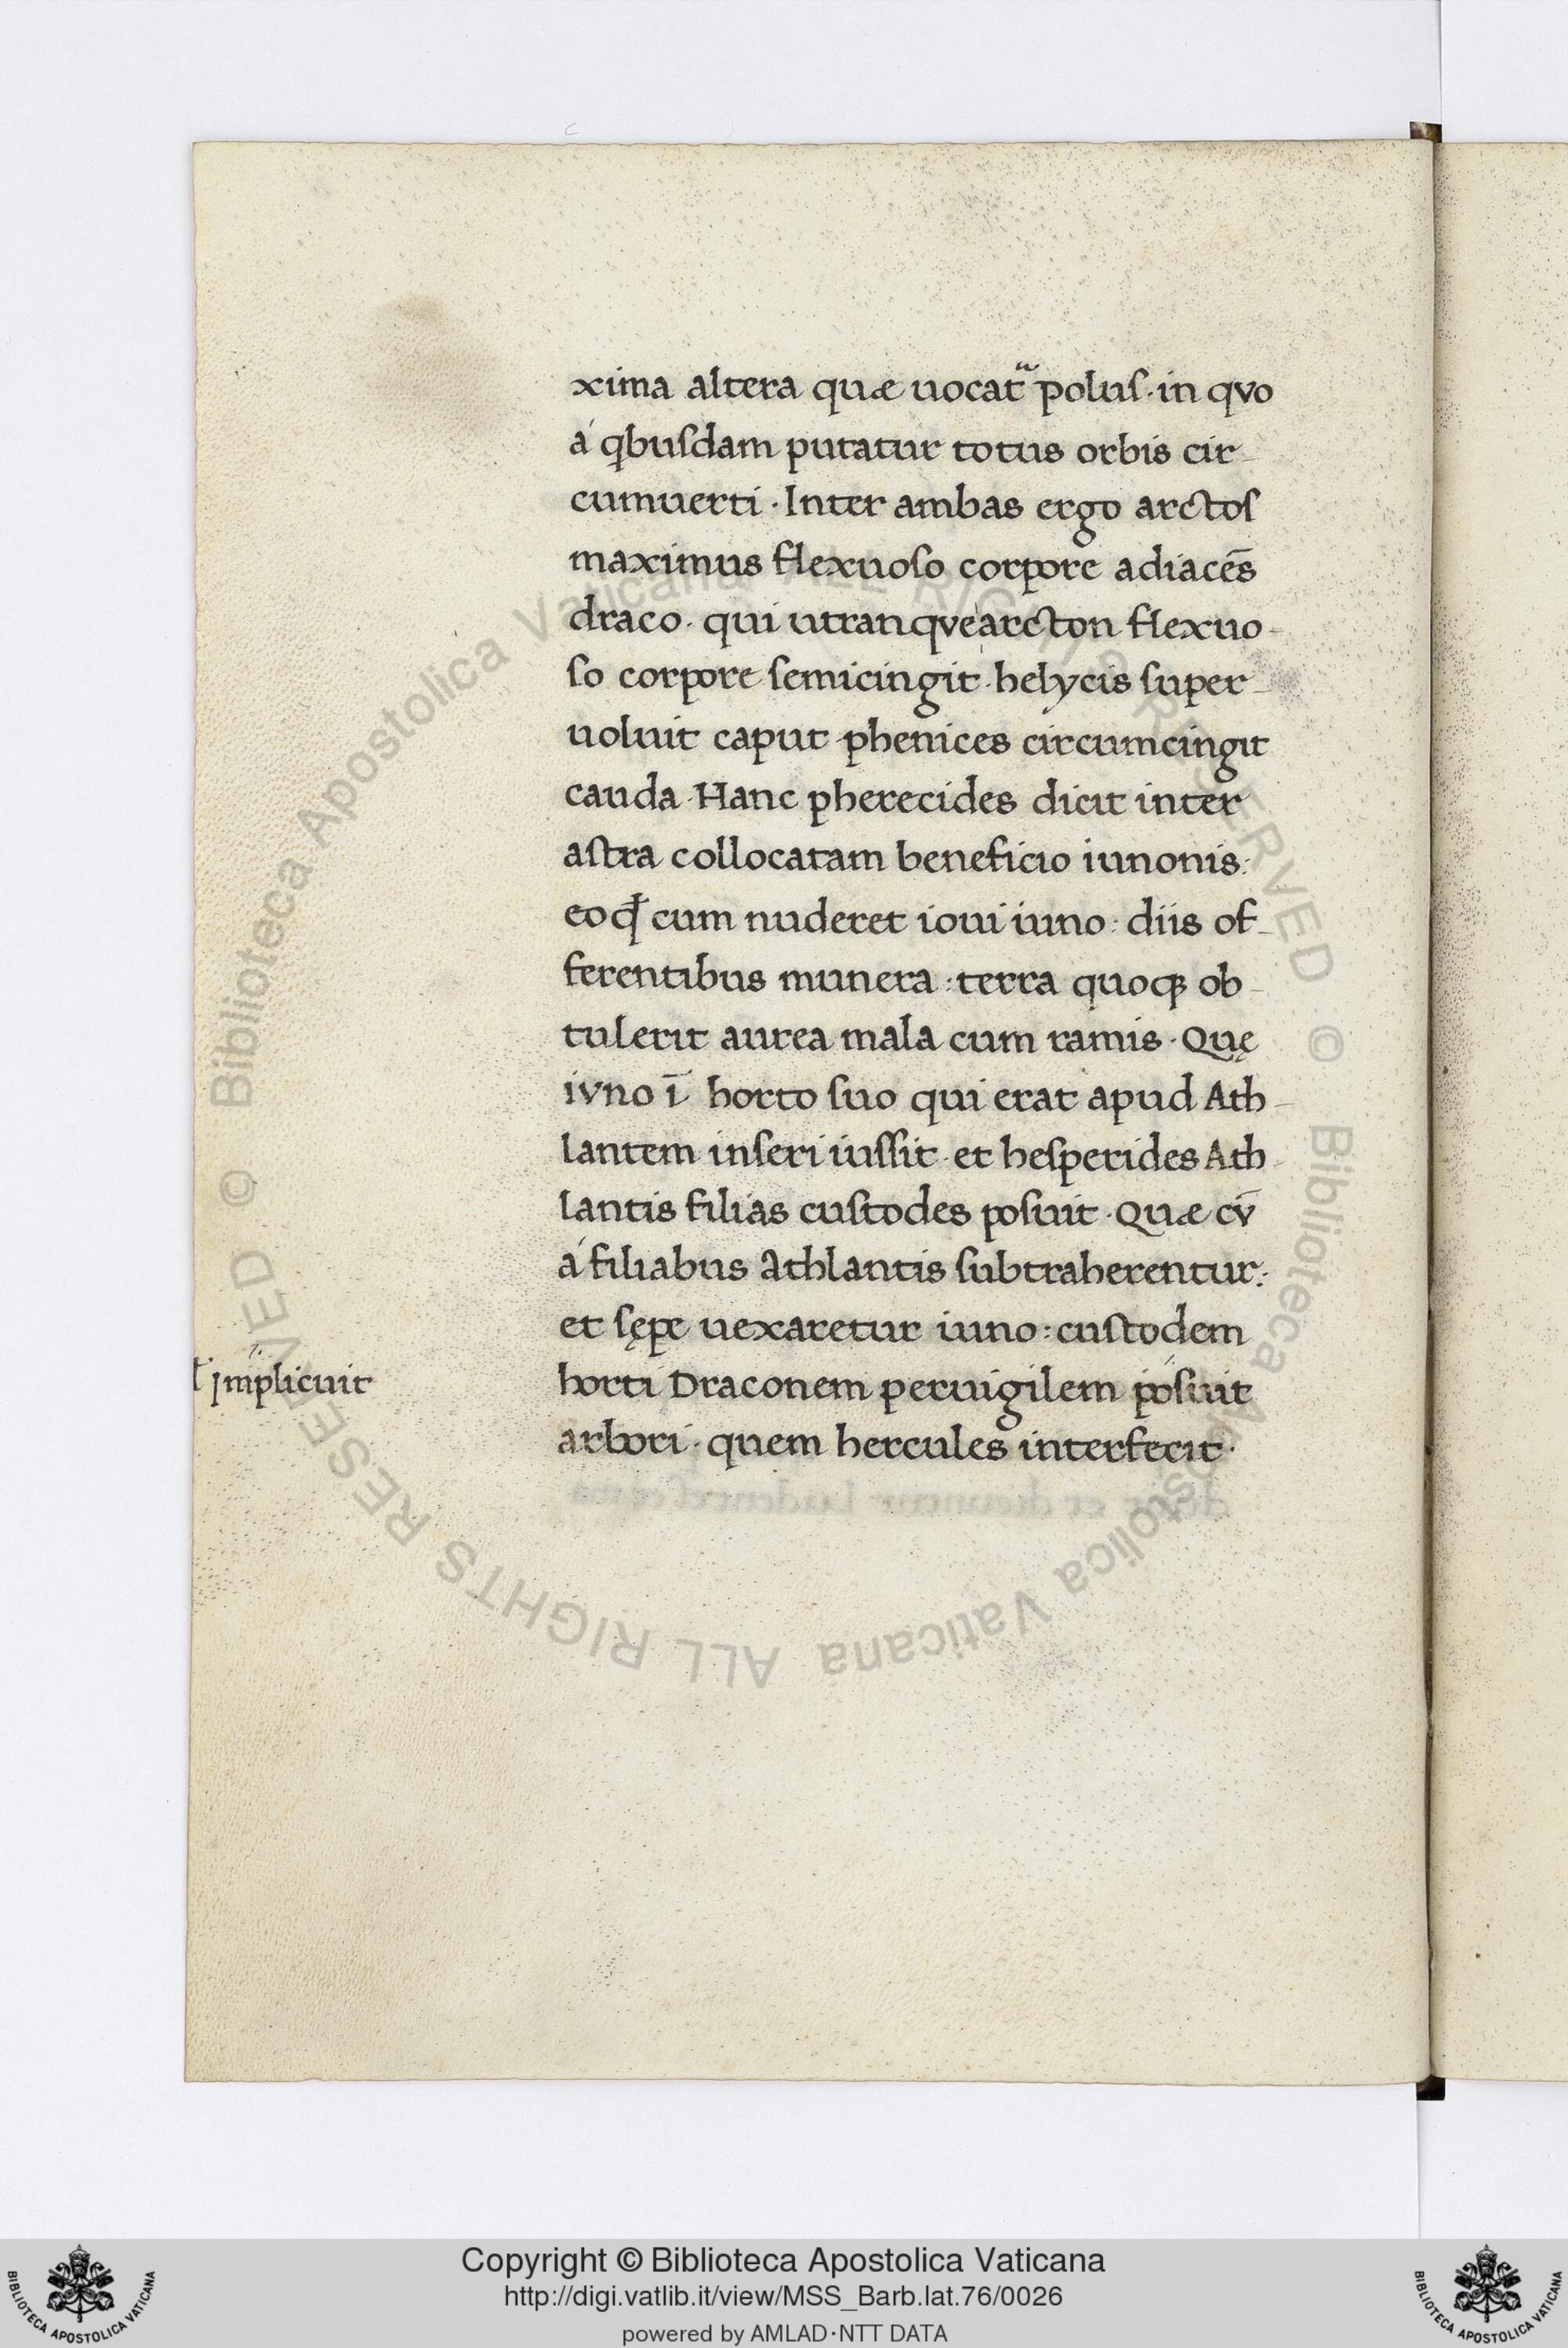 xima altera quæ uocat᷑ polus · in qvo
á qbusdam putatur totus orbis cir-
cumuerti · Inter ambas ergo arctos
maximus flexuoso corpore adiacēs
draco · qui utranqve arcton flexuo-
so corpore semicingit · helycis super-
uoluit caput · phenices circumcingit
cauda · Hanc pherecides dicit inter
astra collocatam beneficio iunonis:
eo qđ cum nuderet ioui iuno: diis of-
ferentibus munera: terra quoqꝫ ob-
tulerit aurea mala cum ramis · Quę
ivno ī horto suo qui erat apud Ath-
lantem inseri iussit · et hesperides Ath-
lantis filias custodes posuit · Quæ cv̄
á filiabus Athlantis subtraherentur:
et sępe uexaretur iuno: custodem
ł implicuit
horti Draconem peruigilem posuit
arbori · quem hercules interfecit ·
Copyright © Biblioteca Apostolica Vaticana
http://digi.vatlib.it/view/MSS_Barb.lat.76/0026
powered by AMLAD·NTT DATA
BIBLIOTECA APOSTOLICA VATICANA
BIBLIOTECA APOSTOLICA VATICANA
© Biblioteca Apostolica Vaticana ALL RIGHTS RESERVED © Biblioteca Apostolica Vaticana ALL RIGHTS RESERVED